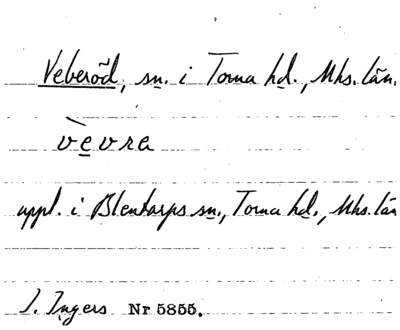 Veberöd, sn. i Torna hd., Mhs. län.
vèvra
uppt. i Blentarps sn., Torna hd., Mhs. län
I. Ingers Nr 5855.